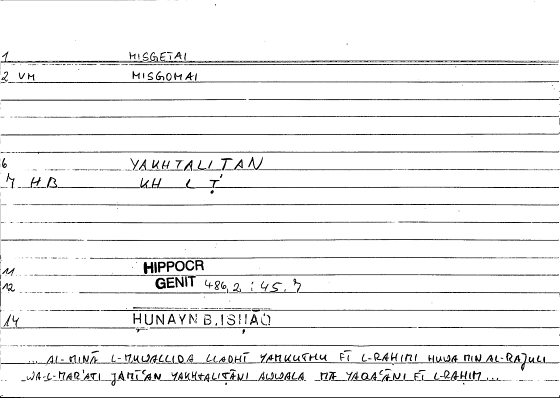 1 MISGETAI
2 VM MISGOMAI
6 YAKHTALIṬĀN
7 HB KH L Ṭ
11 HIPPOCR
12 GENIT 486,2 : 45,7
14 ḤUNAYN B. ISḤĀQ
... AL-MINĀ L-MUWALLIDA LLADHĪ YAMKUTHU FĪ L-RAḤIMI HUWA MIN AL-RAJULI
WA-L-MAR'ATI JAMĪ'AN YAKHTALIṬĀNI AWWALA MĀ YAQA'ĀNI FĪ L-RAḤIM ...